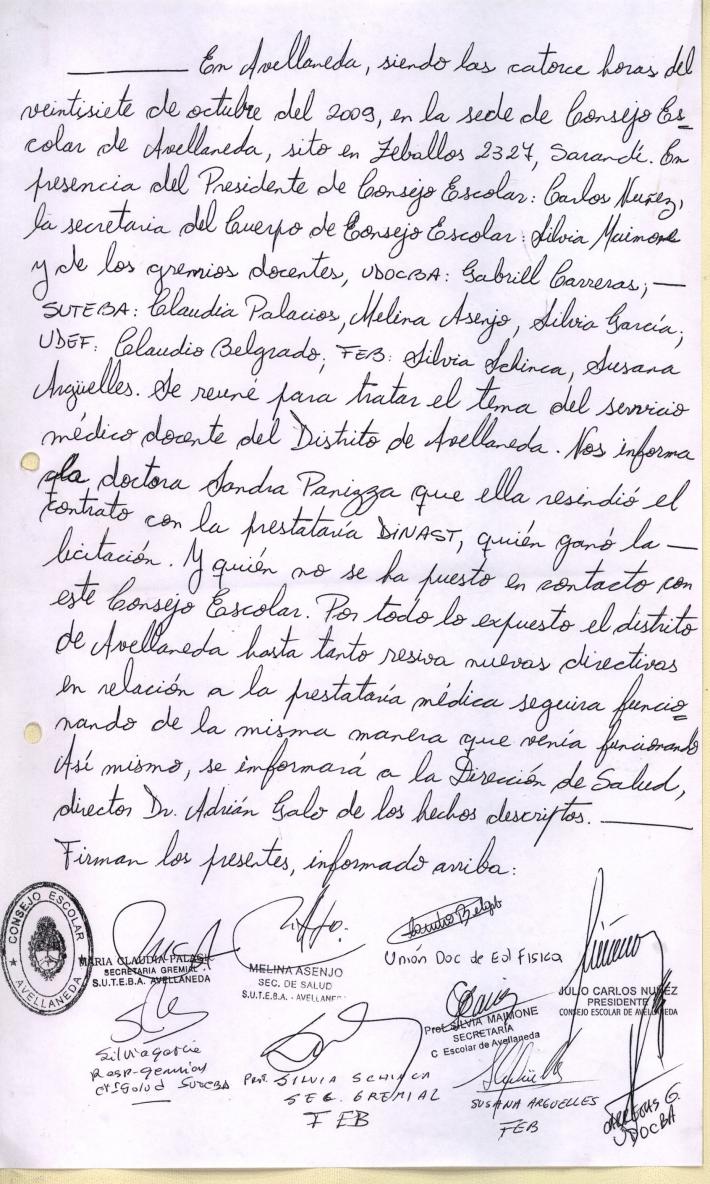 En Avellaneda, siendo las catorce horas del
veintisiete de octubre del 2009, en la sede de Consejo Es=
colar de Avellaneda, sito en Zeballos 2327, Sarandí. En
presencia del Presidente de Consejo Escolar: Carlos Nuñez,
la secretaria del Cuerpo de Consejo Escolar: Silvia Maimone
y de los gremios docentes, UDOCBA: Gabriell Carreras; —
SUTEBA: Claudia Palacios, Melina Asenjo, Silvia García;
UDEF: Claudio Belgrado; FEB: Silvia Schinca, Susana
Argüelles. Se reuné para tratar el tema del servicio
médico docente del Distrito de Avellaneda. Nos informa
la doctora Sandra Panizza que ella resindió el
contrato con la prestataría DINAST, quién ganó la —
licitación. Y quién no se ha puesto en contacto con
este Consejo Escolar. Por todo lo expuesto el distrito
de Avellaneda hasta tanto resiva nuevas directivas
en relación a la prestataría médica seguira funcio=
nando de la misma manera que venía funcionando
Así mismo, se informará a la Dirección de Salud,
director Dr. Adrián Galo de los hechos descriptos. —
Firman los presentes, informado arriba:
CONSEJO ESCOLAR
★ AVELLANEDA ★
MARIA CLAUDIA
SECRETARIA GREMIAL
S.U.T.E.B.A. AVELLANEDA
MELINA ASENJO
SEC. DE SALUD
S.U.T.E.B.A. - AVELLANED
Claudio Belgrado
Unión Doc de Ed FISICA
JULIO CARLOS NUÑEZ
PRESIDENTE
CONSEJO ESCOLAR DE AVELLANEDA
Prof. SILVIA MAIMONE
SECRETARIA
C. Escolar de Avellaneda
Silvia garcia
Resp-gemion
Salud SUTEBA
Prof. SILVIA SCHINCA
SEC. GREMIAL
FEB
SUSANA ARGUELLES
FEB
CARRERAS G.
UDOCBA